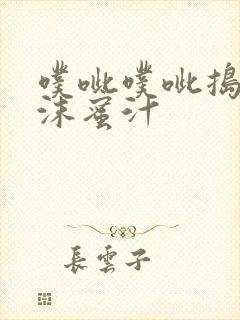 噗呲噗呲搗
沫蜜汁
長雲子